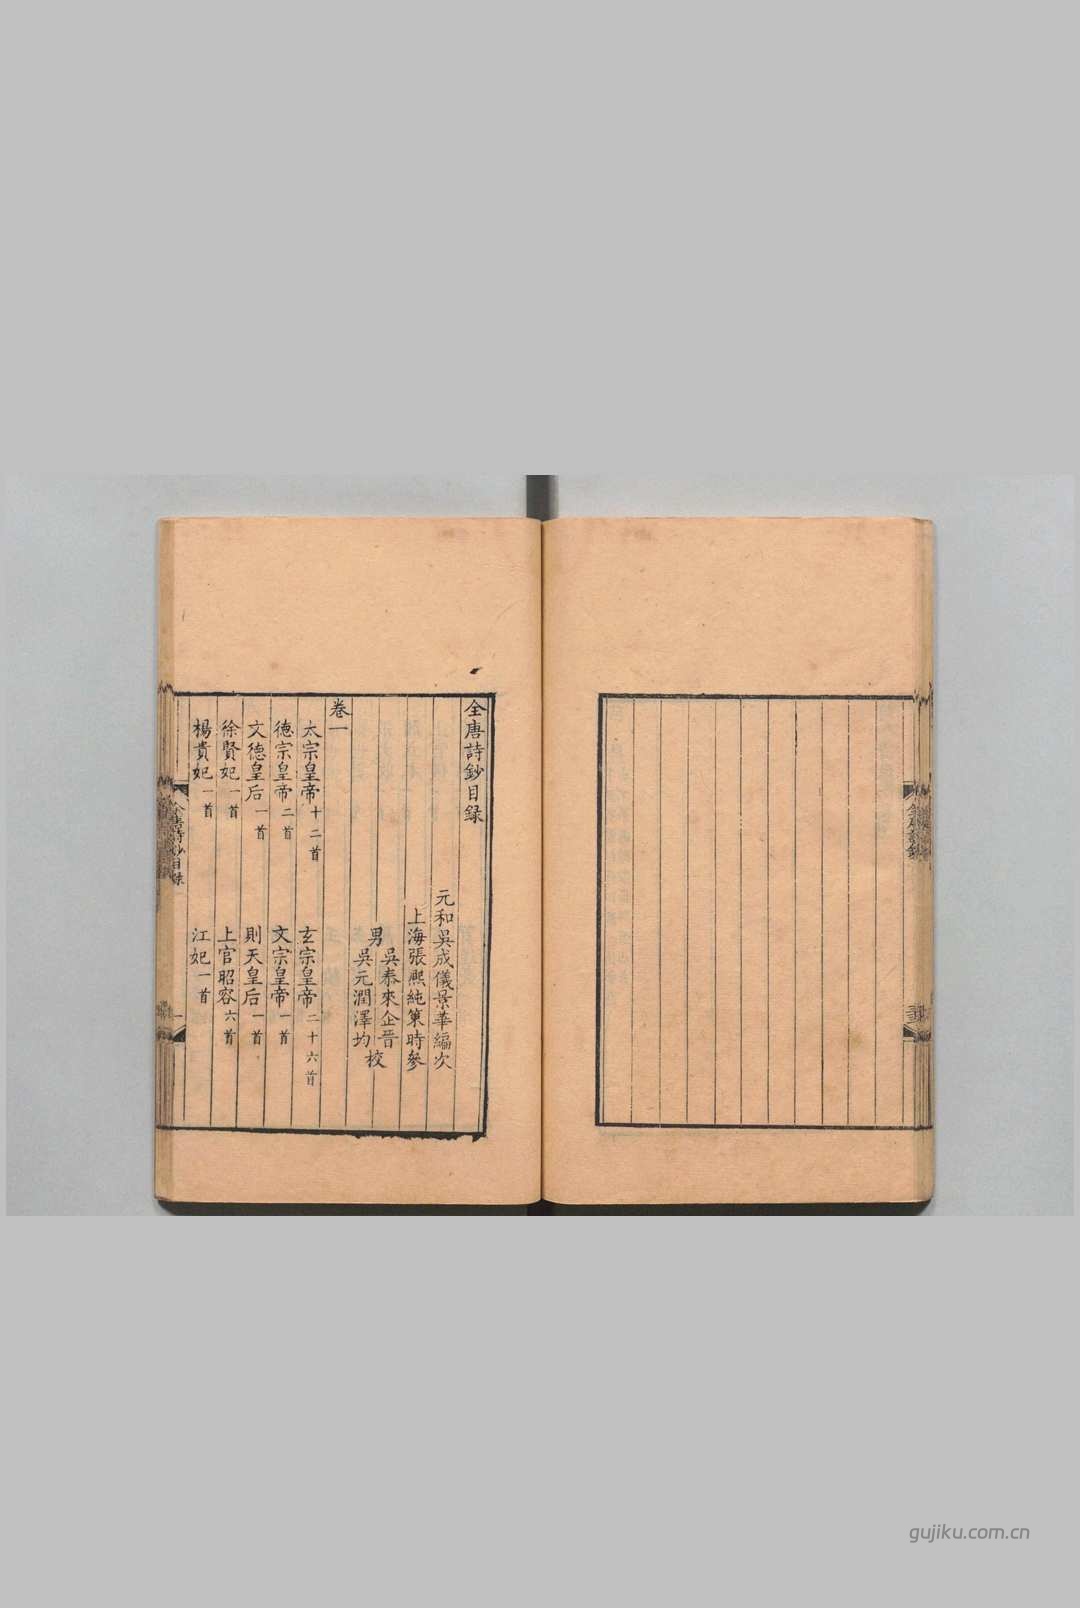 全唐詩鈔
全唐詩鈔目録
元和吳成儀景華編次
上海張熙純策時參
男
吳泰來企晉
吳元潤澤均
校
卷一
太宗皇帝十二首
玄宗皇帝二十六首
德宗皇帝二首
文宗皇帝一首
文德皇后一首
則天皇后一首
徐賢妃一首
上官昭容六首
楊貴妃一首
江妃一首
全唐詩鈔目録
一
gujiku.com.cn